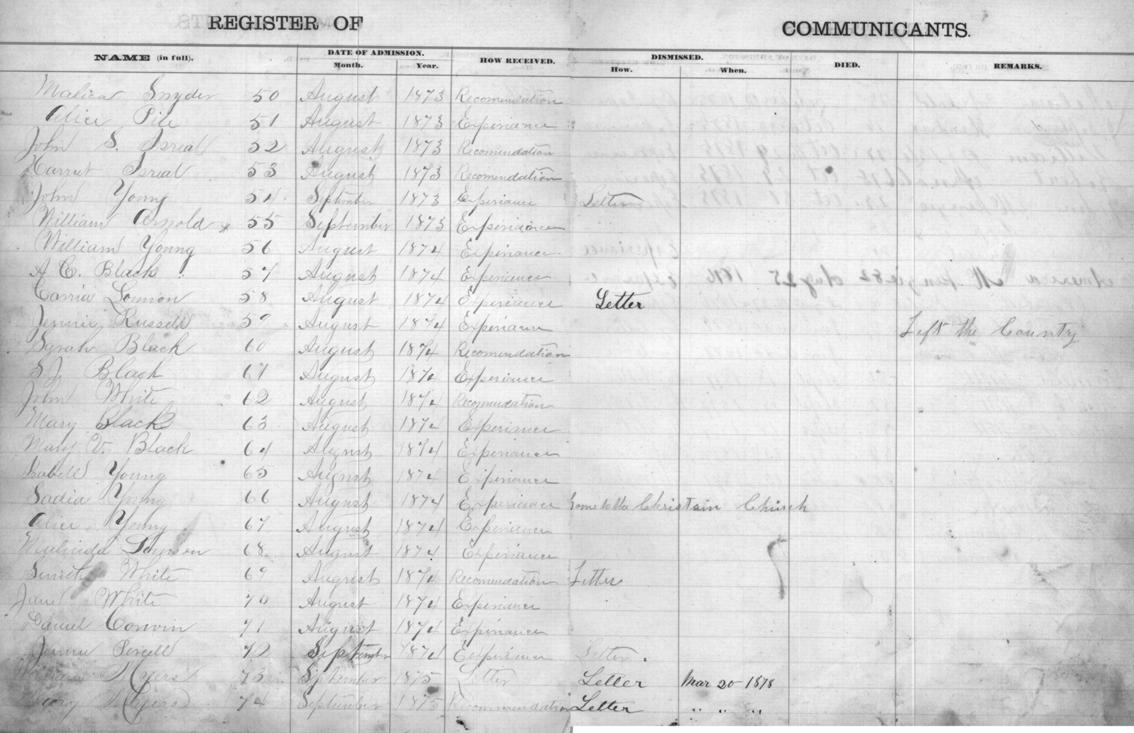 REGISTER OF COMMUNICANTS.
NAME (in full). DATE OF ADMISSION. HOW RECEIVED. DISMISSED. DIED. REMARKS.
Month. Year. How. When.
Snyder 50 August 1873 Recomendation
Alice Pile 51 August 1873 Experiance
John S. Isreal 52 August 1873 Recomendation
Harriet Isreal 53 August 1873 Recomendation
John Young 54 September 1873 Experiance Letter
William Arnold x 55 September 1873 Experiance
William Young 56 August 1874 Experiance
A C. Black 57 August 1874 Experience
Carria 58 August 1874 Experience Letter
Jennie Russell 59 August 1874 Experiance Left the County
Syrah Black 60 August 1874 Recomendation
S J Black 61 August 1874 Experiance
John White 62 August 1874 Recomendation
Mary Black 63 August 1874 Experiance
Mary V. Black 64 August 1874 Experiance
Isabell Young 65 August 1874 Experiance
Sadia Young 66 August 1874 Experiance Gone to the Christain Chirch
Alice Young 67 August 1874 Experiance
68 August 1874 Experiance
White 69 August 1874 Recomendation Letter
Jane White 70 August 1874 Experiance
Daniel Corwin 71 August 1874 Experiance
Jennie 72 September 1874 Experiance Letter.
Myers 73 September 1875 Letter Letter Mar 20-1878
Myers 74 September 1875 Recommendation Letter " " "